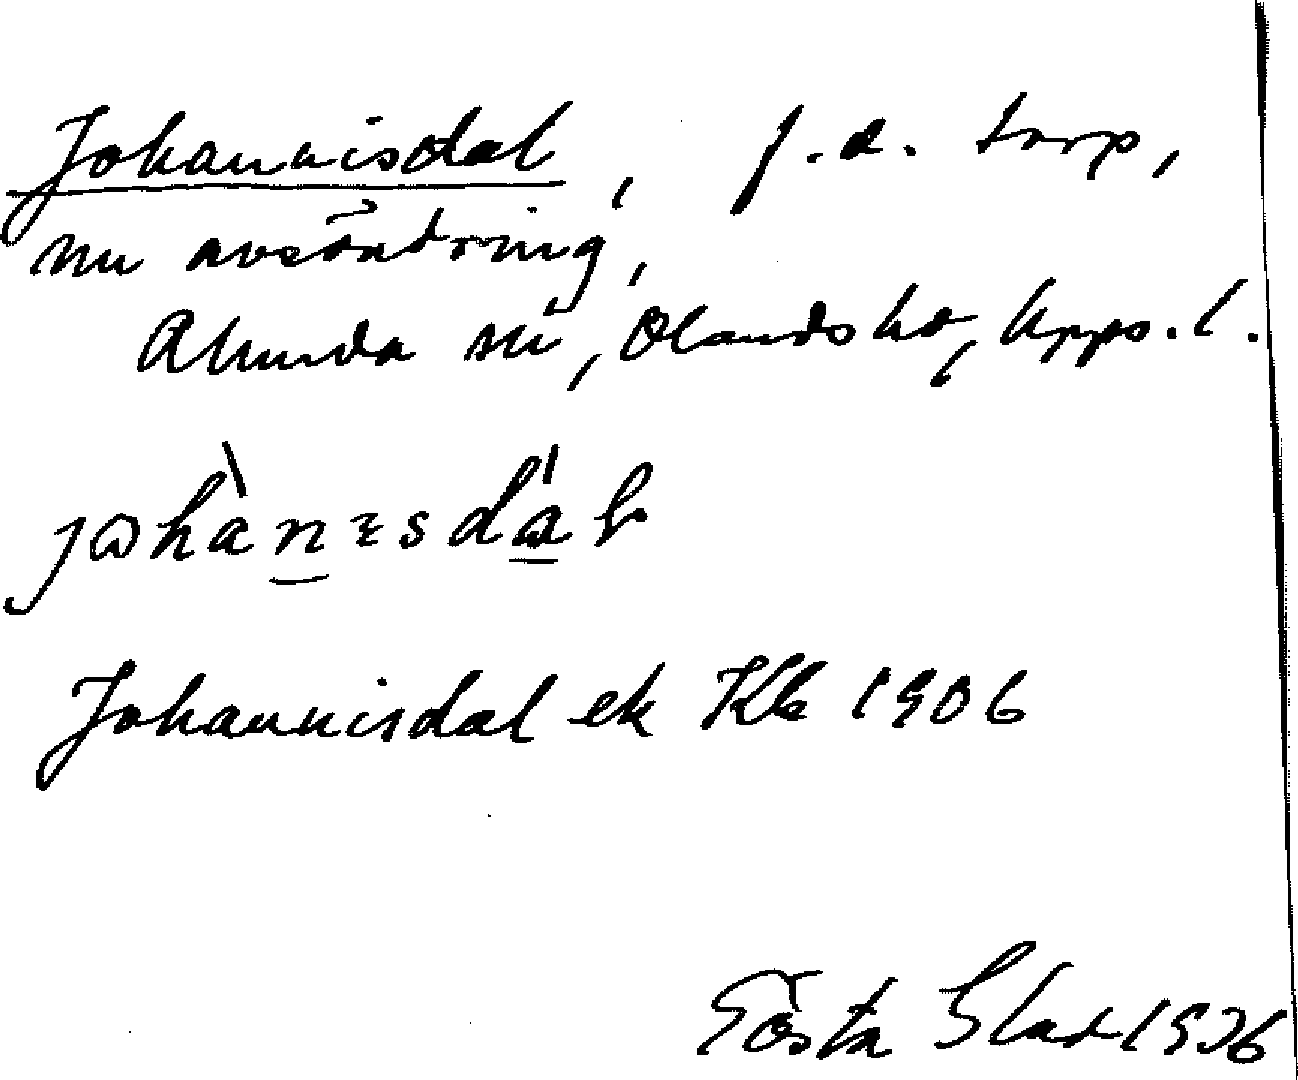 Johannisdal, f.d. torp,
nu avsöndring,
Alunda sn, Olands hd, Upps.l.
johànɛsdál
Johannisdal ek Kb 1906
Gösta Blad 1936